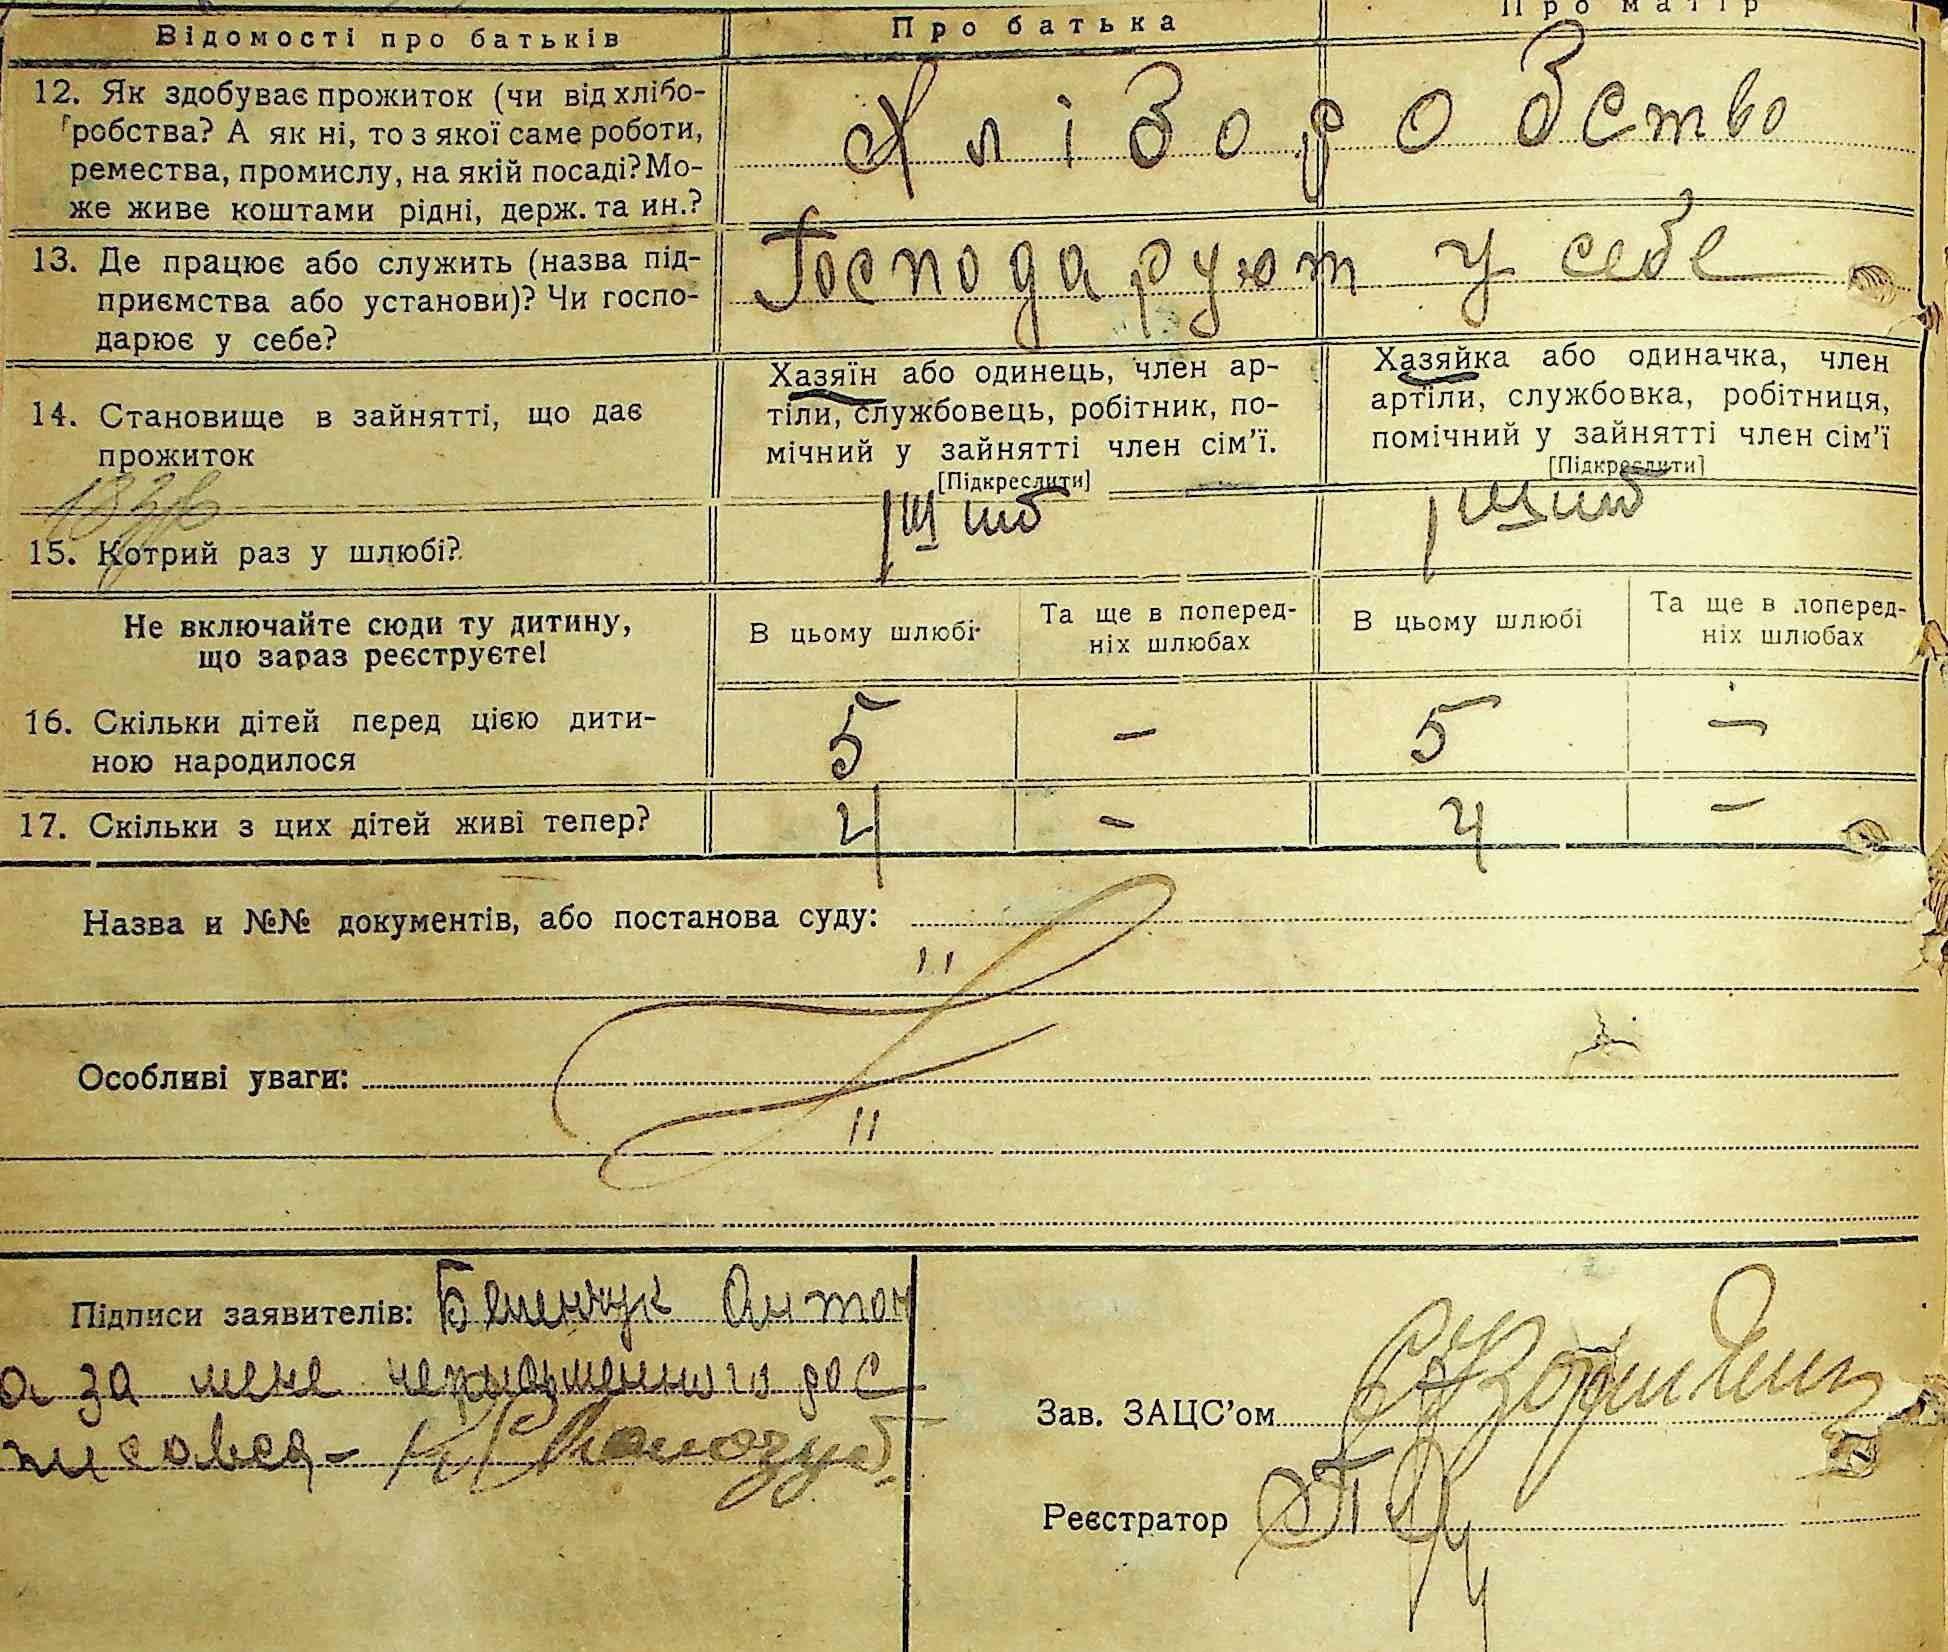 Відомості про батьків Про батька Про матір
12. Як здобуває прожиток (чи від хлібо-
робства? А як ні, то з якої саме роботи,
ремества, промислу, на якій посаді? Мо-
же живе коштами рідні, держ. та ин.?
Хліборобство
13. Де працює або служить (назва під-
приємства або установи)? Чи госпо-
дарює у себе?
Господаруют у себе
14. Становище в зайнятті, що дає
прожиток
Хазяїн або одинець, член ар-
тіли, службовець, робітник, по-
мічний у зайнятті член сім’ї.
[Підкреслити]
Хазяйка або одиначка, член
артіли, службовка, робітниця,
помічний у зайнятті член сім’ї
[Підкреслити]
15. Котрий раз у шлюбі?
Не включайте сюди ту дитину,
що зараз реєструєте!
В цьому шлюбі
Та ще в поперед-
ніх шлюбах
В цьому шлюбі
Та ще в поперед-
ніх шлюбах
16. Скільки дітей перед цією дити-
ною народилося
5 - 5 -
17. Скільки з цих дітей живі тепер?
4 - 4 -
Назва и №№ документів, або постанова суду:
Особливі уваги:
Підписи заявителів: Антон
а за мене рос
Зав. ЗАЦС’ом
Реєстратор